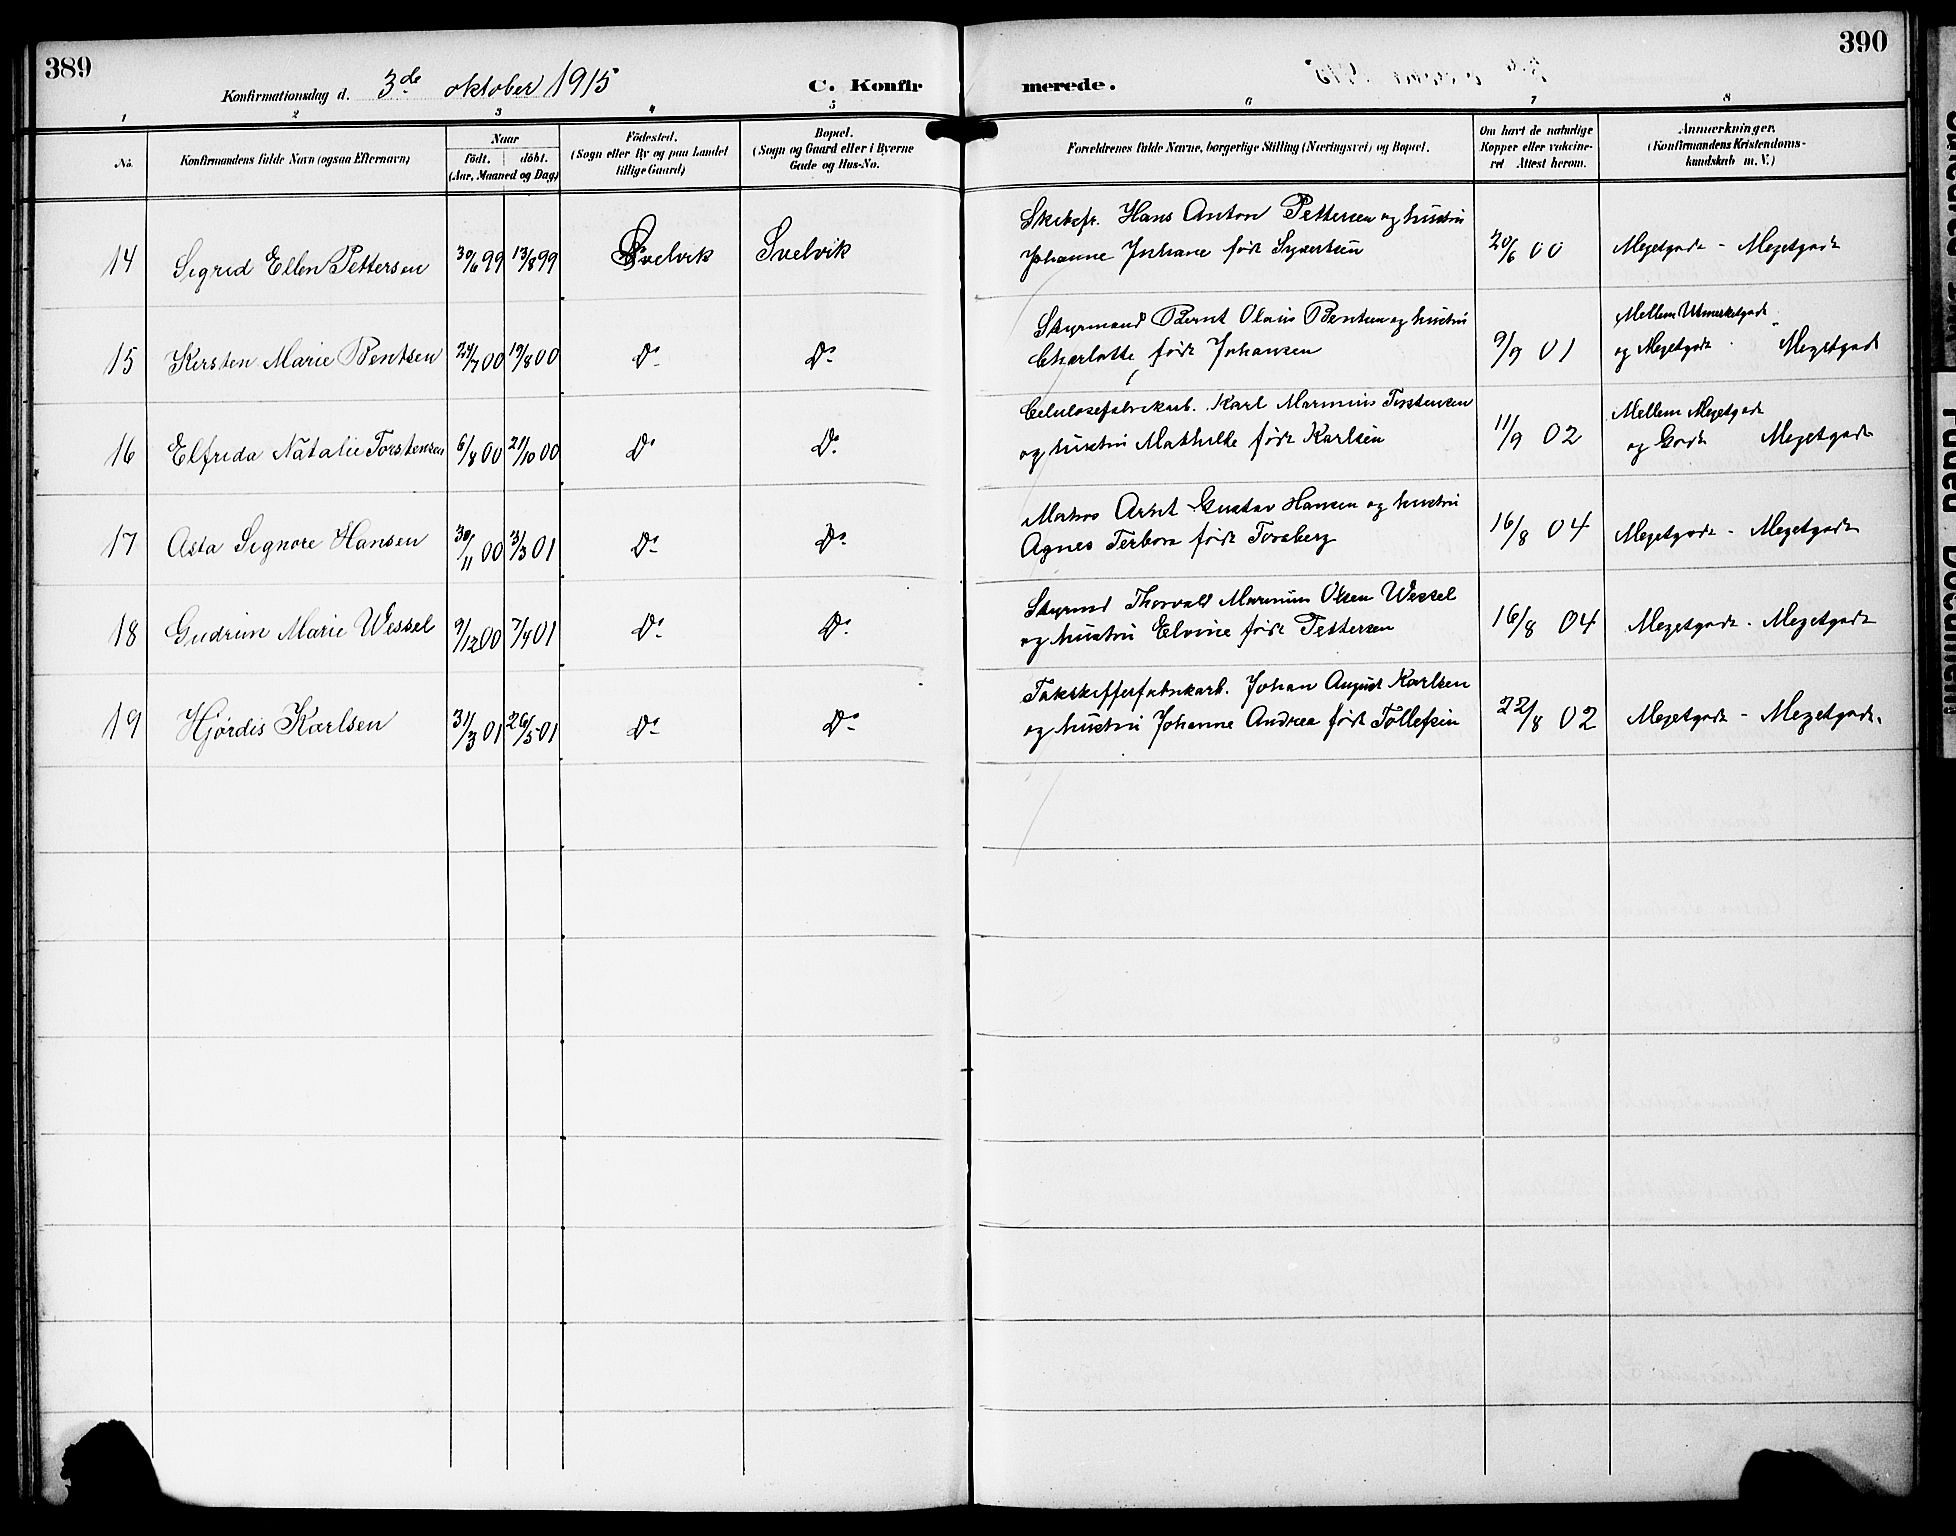 389
390
Konfirmationsdag d. 3de oktober 1915
C. Konfir
merede.
1 2 3 4 5 6 7 8
No.
Konfirmandens fulde Navn (ogsaa Efternavn)
Naar
födt. döbt.
(Aar, Maaned og Dag)
Födested.
(Sogn eller By og paa Landet
tillige Gaard)
Bopæl.
(Sogn og Gaard eller i Byerne
Gade og Hus-No.
Forældrenes fulde Navne, borgerlige Stilling (Næringsvei) og Bopæl.
Om havt de naturlige
Kopper eller vakcine-
ret Attest herom.
Anmærkninger.
(Konfirmandens Kristendoms-
kundskab m. V.)
14 Sigrid Ellen Pettersen 30/6 99 13/8 99 Svelvik Svelvik
Skibsfr. Hans Anton Pettersen og hustru
Johanne Joshane født Syvertsen
20/6 00 Megetgodt - Megetgodt
15 Kirsten Marie Bentsen 24/7 00 19/8 00 Do Do
Styrmand Bernt Olaus Bentsen og hustru
Charlotte, født Johansen
9/9 01
Mellem Utmerketgodt
og Megetgodt - Megetgodt
16 Elfrida Natalie Torstensen 6/8 00 21/10 00 Do Do
Celulosefabrikarb. Karl Marinius Torstensen
og hustru Mathilde født Karlsen
11/9 02
Mellem Megetgodt
og Godt Megetgodt
17 Asta Signore Hansen 30/11 00 23/3 01 Do Do
Matros Arnt Gustav Hansen og hustru
Agnes Terbora født Forsberg
16/8 04 Megetgodt - Megetgodt
18 Gudrun Marie Wessel 9/12 00 7/4 01 Do Do
Styrmd Thorvald Marinius Olsen Wessel
og hustru Elvine født Pettersen
16/8 04 Megetgodt - Megetgodt
19 Hjørdis Karlsen 31/3 01 26/5 01 Do Do
Takskifferfabrikarb. Johan August Karlsen
og hustru Johanne Andrea født Tollefsen
22/8 02 Megetgodt - Megetgodt.